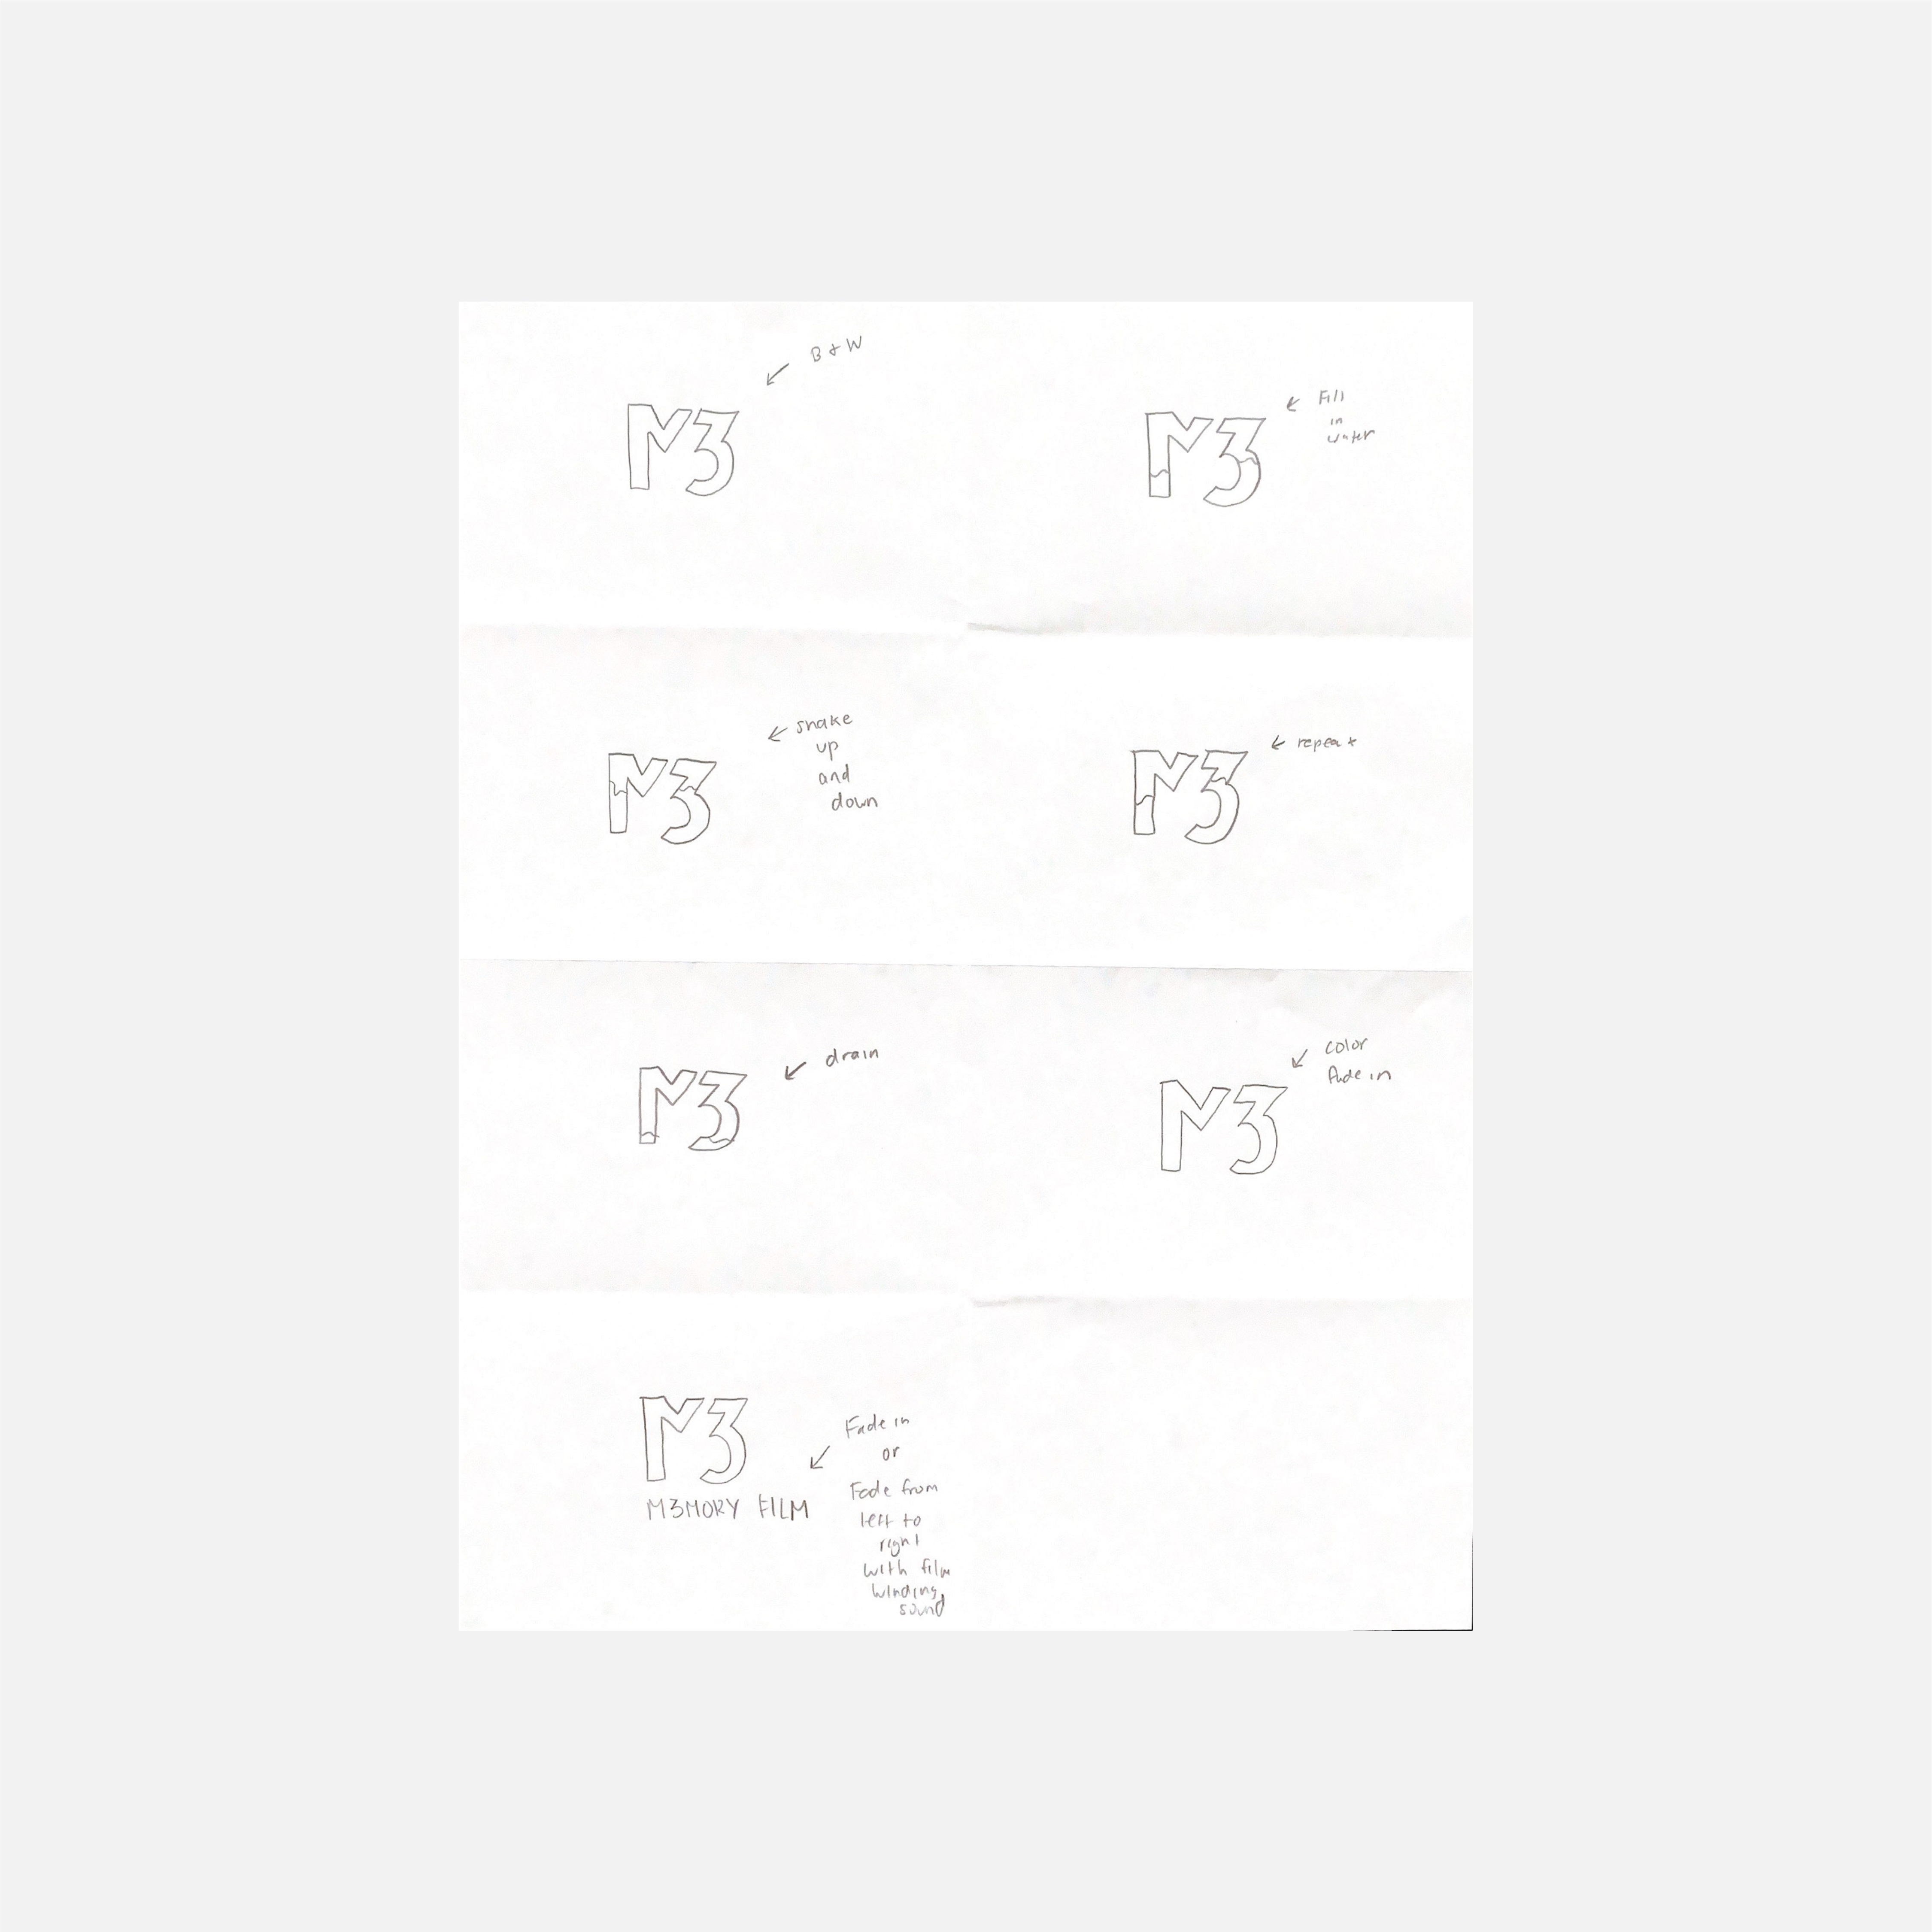 B & W
M3
Fill
in
water
M3
shake
up
and
down
M3
repeat
M3
drain
M3
color
fade in
M3
M3
M3MORY FILM
Fade in
or
Fade from
left to
right
with film
winding
sound